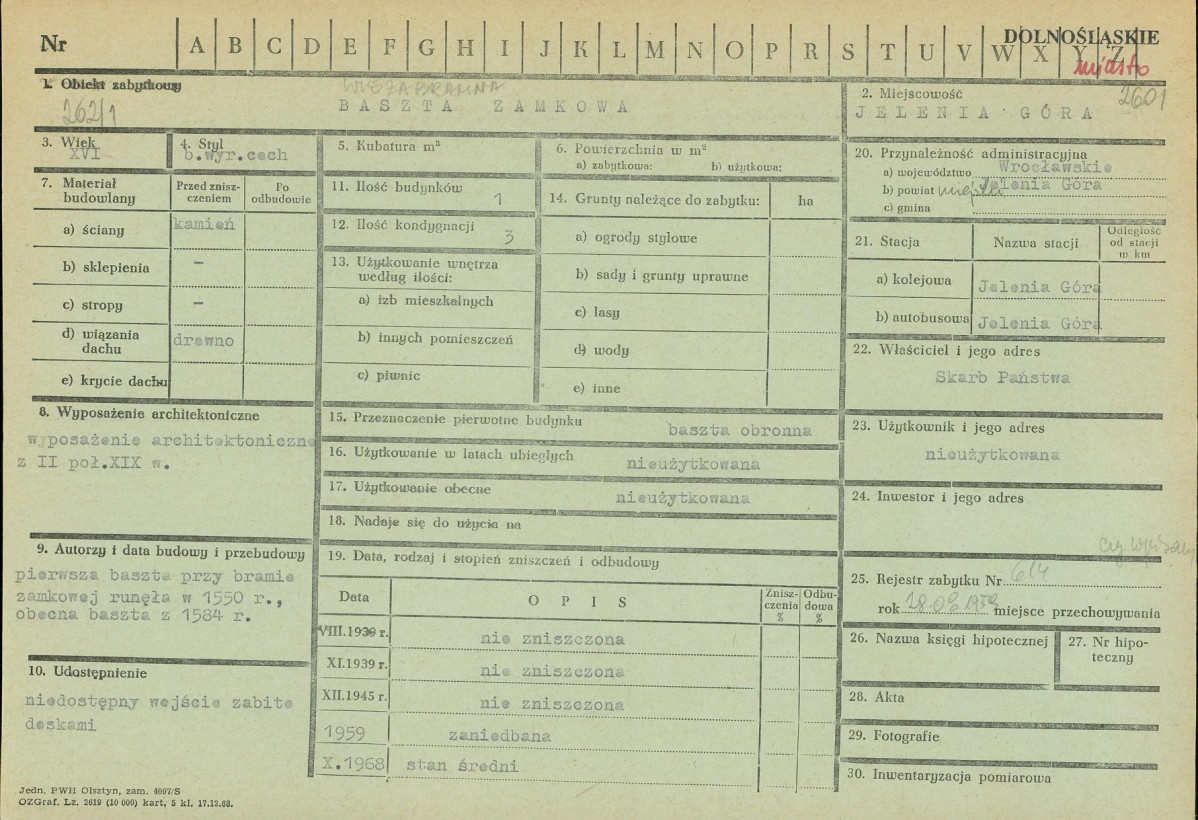 Nr A B C D E F G H I J K L M N O P R S T U V W X Y Z
DOLNOŚLĄSKIE
miasto
1. Obiekt zabytkowy
262/1
WIEŻA BRAMNA
BASZTA ZAMKOWA
2. Miejscowość
2601
JELENIA GÓRA
3. Wiek
XVI
4. Styl
b.wyr.cech
5. Kubatura m³
6. Powierzchnia w m²
a) zabytkowa: b) użytkowa:
7. Materiał budowlany
Przed zniszczeniem
Po odbudowie
a) ściany
kamień
b) sklepienia
–
c) stropy
–
d) wiązania dachu
drewno
e) krycie dachu
8. Wyposażenie architektoniczne
wyposażenie architektoniczne
z II poł.XIX w.
9. Autorzy i data budowy i przebudowy
pierwsza baszta przy bramie
zamkowej runęła w 1550 r.,
obecna baszta z 1584 r.
10. Udostępnienie
niedostępny wejście zabite
deskami
11. Ilość budynków
1
12. Ilość kondygnacji
3
13. Użytkowanie wnętrza
według ilości:
a) izb mieszkalnych
b) innych pomieszczeń
c) piwnic
14. Grunty należące do zabytku:
ha
a) ogrody stylowe
b) sady i grunty uprawne
c) lasy
d) wody
e) inne
15. Przeznaczenie pierwotne budynku
baszta obronna
16. Użytkowanie w latach ubiegłych
nieużytkowana
17. Użytkowanie obecne
nieużytkowana
18. Nadaje się do użycia na
19. Data, rodzaj i stopień zniszczeń i odbudowy
Data
O P I S
Zniszczenia %
Odbudowa %
VIII.1939 r.
nie zniszczona
XI.1939 r.
nie zniszczona
XII.1945 r.
nie zniszczona
1959
zaniedbana
X.1968
stan średni
20. Przynależność administracyjna
a) województwo Wrocławskie
b) powiat miejski Jelenia Góra
c) gmina
21. Stacja
Nazwa stacji
Odległość
od stacji
w km
a) kolejowa
Jelenia Góra
b) autobusowa
Jelenia Góra
22. Właściciel i jego adres
Skarb Państwa
23. Użytkownik i jego adres
nieużytkowana
24. Inwestor i jego adres
25. Rejestr zabytku Nr 614
rok miejsce przechowywania
26. Nazwa księgi hipotecznej
27. Nr hipoteczny
28. Akta
29. Fotografie
30. Inwentaryzacja pomiarowa
Jedn. PWH Olsztyn, zam. 4097/S
OZGraf. Lz. 2619 (10 000) kart, 5 kl. 17.12.68.